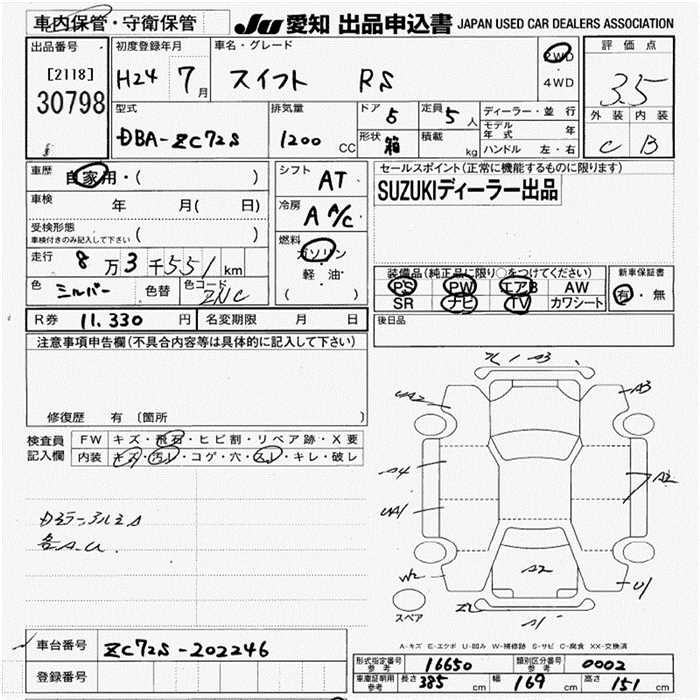 車内保管・守衛保管
JU 愛知 出品申込書 JAPAN USED CAR DEALERS ASSOCIATION
出品番号
[2118]
30798
初度登録年月
H24 7 月
車名・グレード
スイフト RS
2WD
・4WD
評価点
3.5
外装 内装
C B
型式
DBA-ZC72S
排気量
1200 CC
ドア 5
定員 5 人
形状 箱
積載 kg
ディーラー・並行
モデル年式 年
ハンドル 左・右
車歴
自家用・( )
車検 年 月( 日)
受検形態
車検付きのみ記入して下さい ( )
走行 8万3千551km
色 シルバー 色替 色コード ZNC
シフト AT
冷房 A A/C
燃料
ガソリン
軽・油
( )
セールスポイント(正常に機能するものに限ります)
SUZUKIディーラー出品
装備品(純正品に限り○をつけてください)
PS PW エアB AW
SR ナビ TV カワシート
新車保証書
有・無
後日品
R券 11,330 円 名変期限 月 日
注意事項申告欄(不具合内容等は具体的に記入して下さい)
修復歴 有 〔箇所
検査員
記入欄
FW キズ・飛石・ヒビ割・リペア跡・X要
内装 キズ・汚レ・コゲ・穴・スレ・キレ・破レ
各A.U.
A3
UA2
A3
A4
UA1
A2
W2
A2
U1
スペア
A-キズ E-エクボ U-凹み W-補修跡 S-サビ C-腐食 XX-交換済
車台番号 ZC72S-202246
登録番号
形式指定番号 参考 16650 類別区分番号 参考 0002
車庫証明用 参考 長さ 385 cm 幅 169 cm 高さ 151 cm